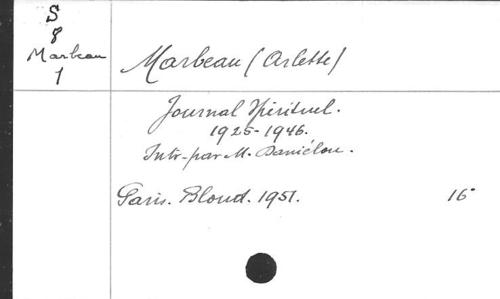 S
8
Marbeau
1
Marbeau (Arlette)
Journal Spirituel.
1925-1946.
Intr. par M. Daniélou.
Paris. Bloud. 1951. 16°